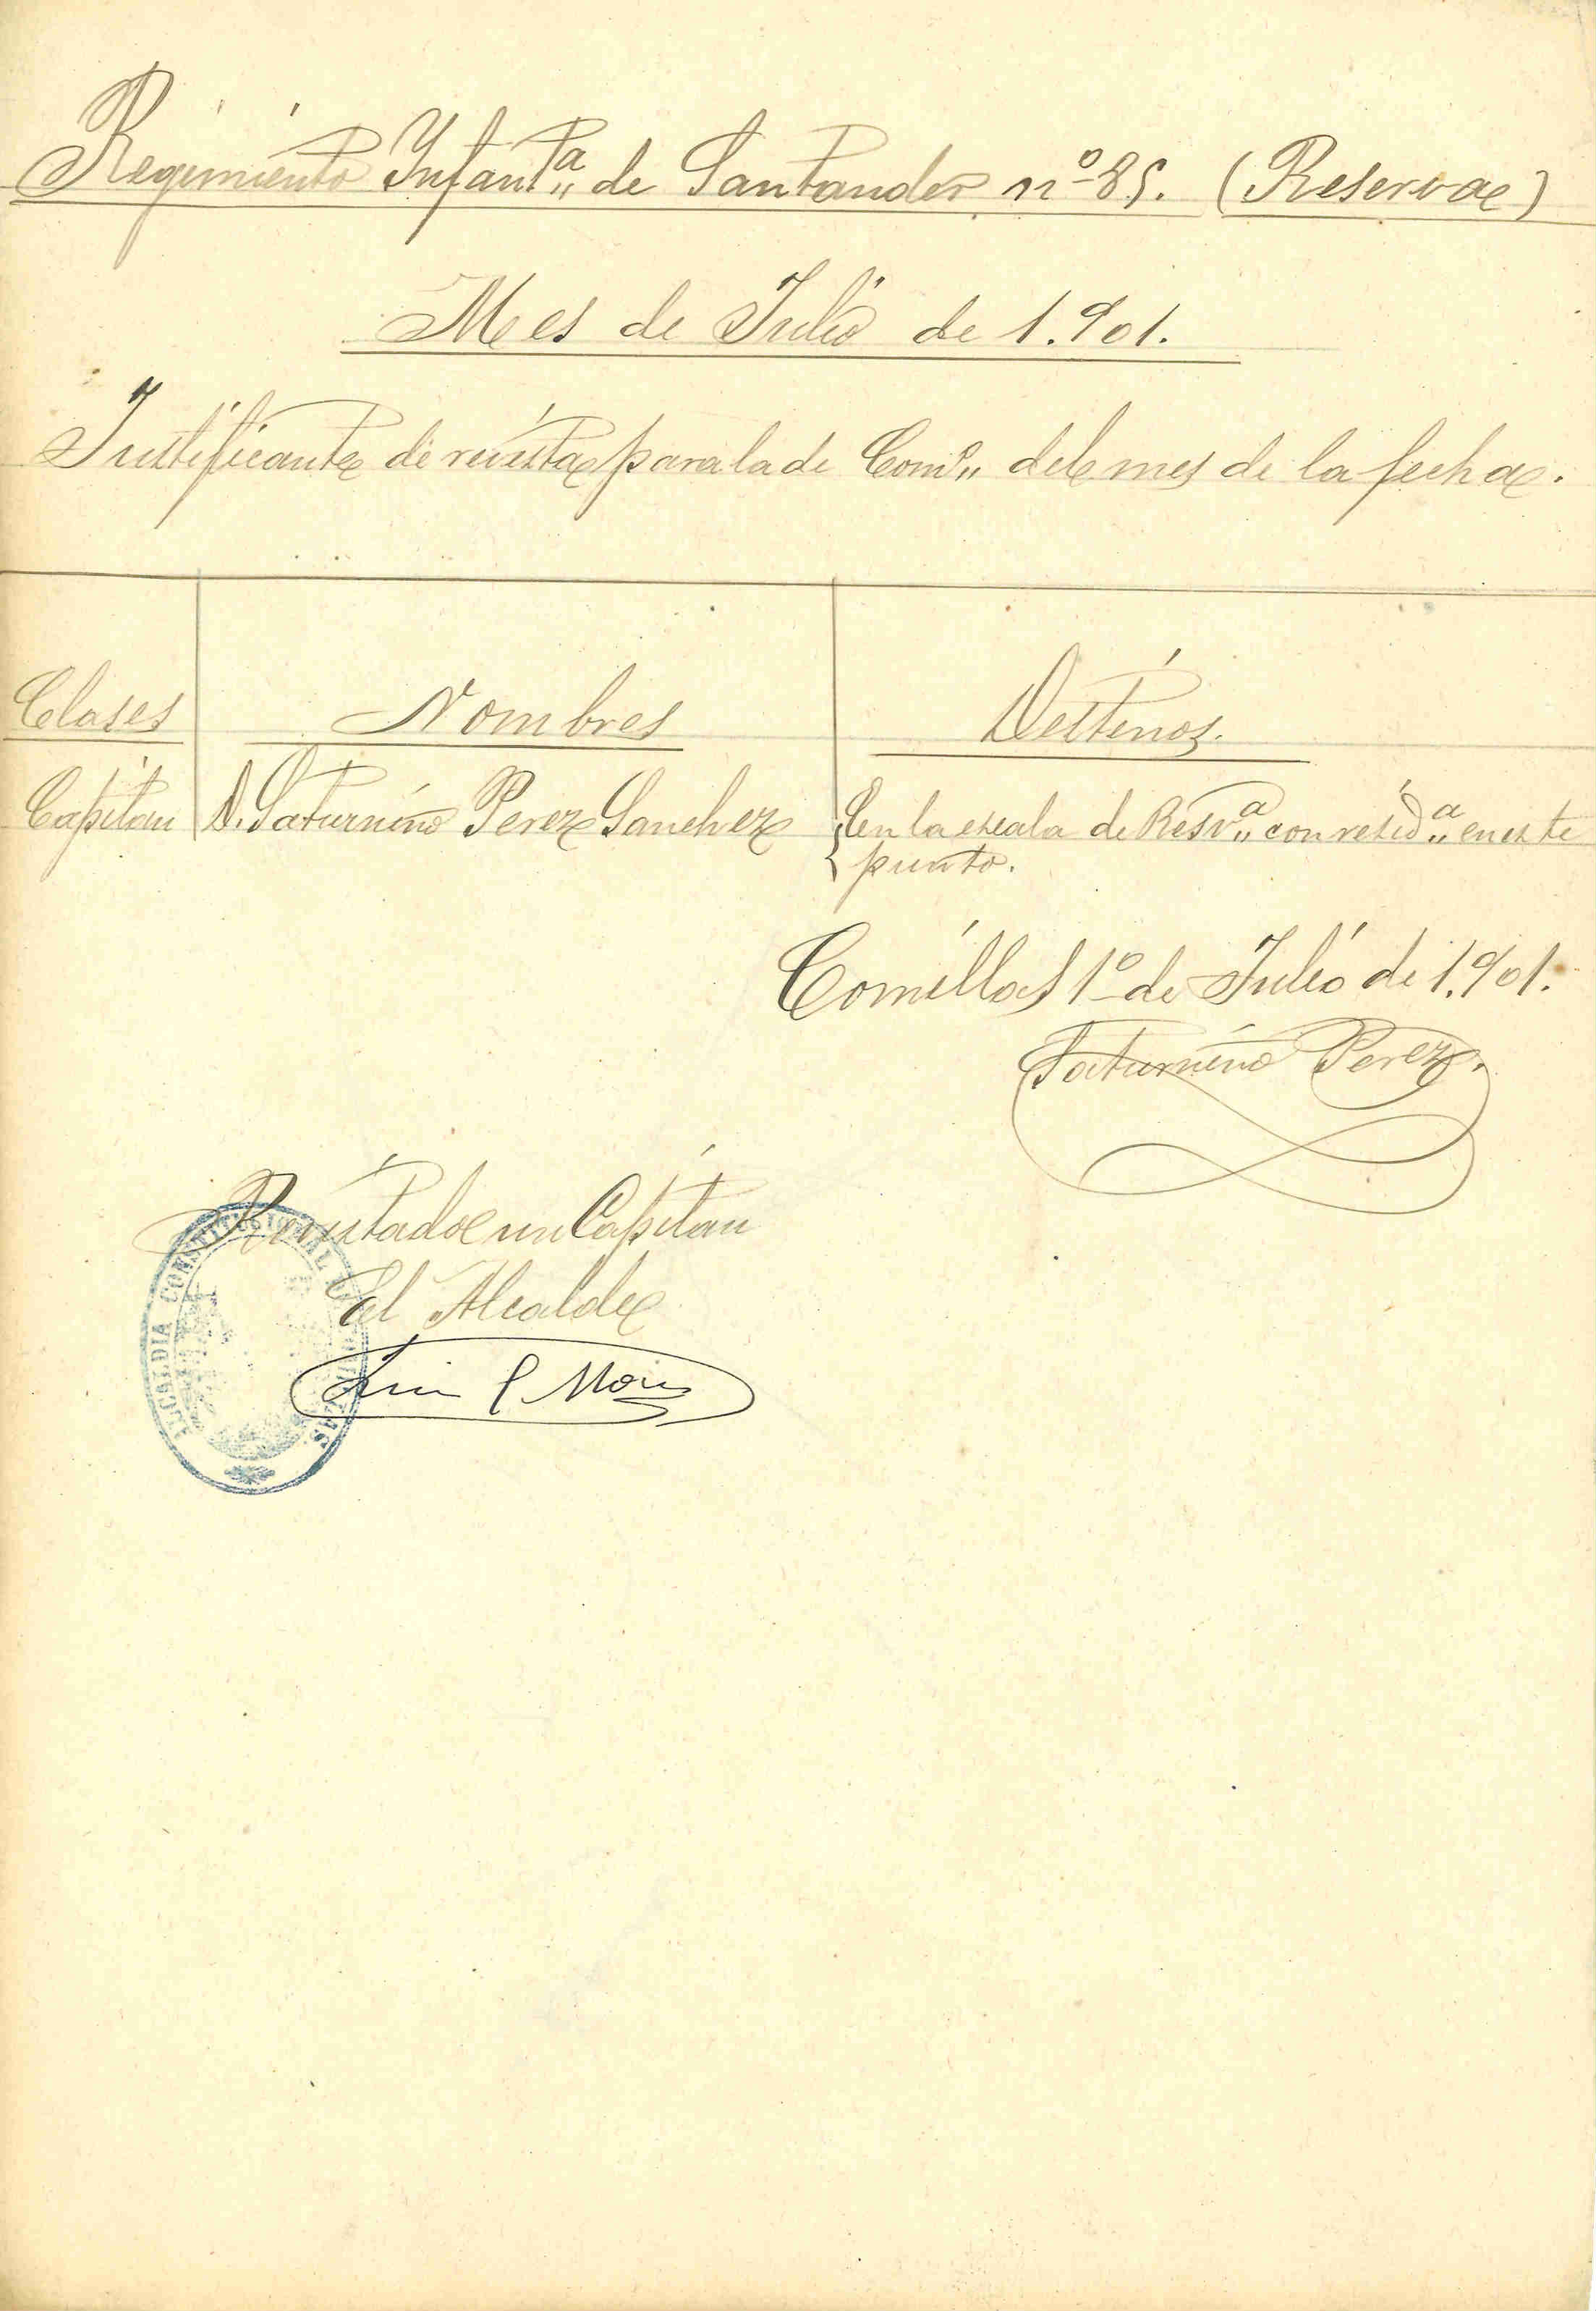 Regimiento Ynfant.ª de Santander nº 85. (Reserva)
Mes de Julio de 1.901.
Justificante de revista para la de Com.º del mes de la fecha.
Clases Nombres Destinos.
Capitan D. Saturnino Perez Sanchez En la escala de Resv.ª con resid.ª en este
punto.
Comillas 1º de Julio de 1.901.
Saturnino Perez.
Revistado un Capitan
El Alcalde
ALCALDIA CONSTITUCIONAL